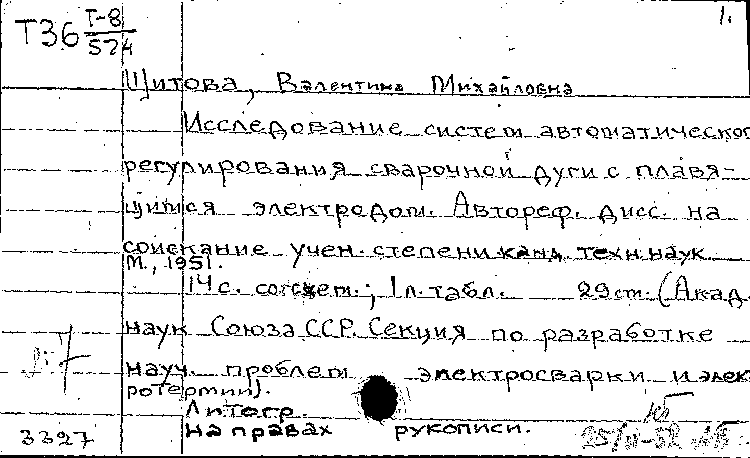 Т36 Т-8/574
1.
Щитова, Валентина Михайловна
Исследование систем автоматическог
регулирования сварочной дуги с плавя-
щимся электродом. Автореф. дисс. на
соискание учен. степени канд. техн. наук.
М., 1951.
14 с. со схем.; 1 л. табл. 29 см. (Акад.
наук Союза ССР. Секция по разработке
науч. проблем электросварки и элек
ротермии).
Литогр.
на правах рукописи.
3327